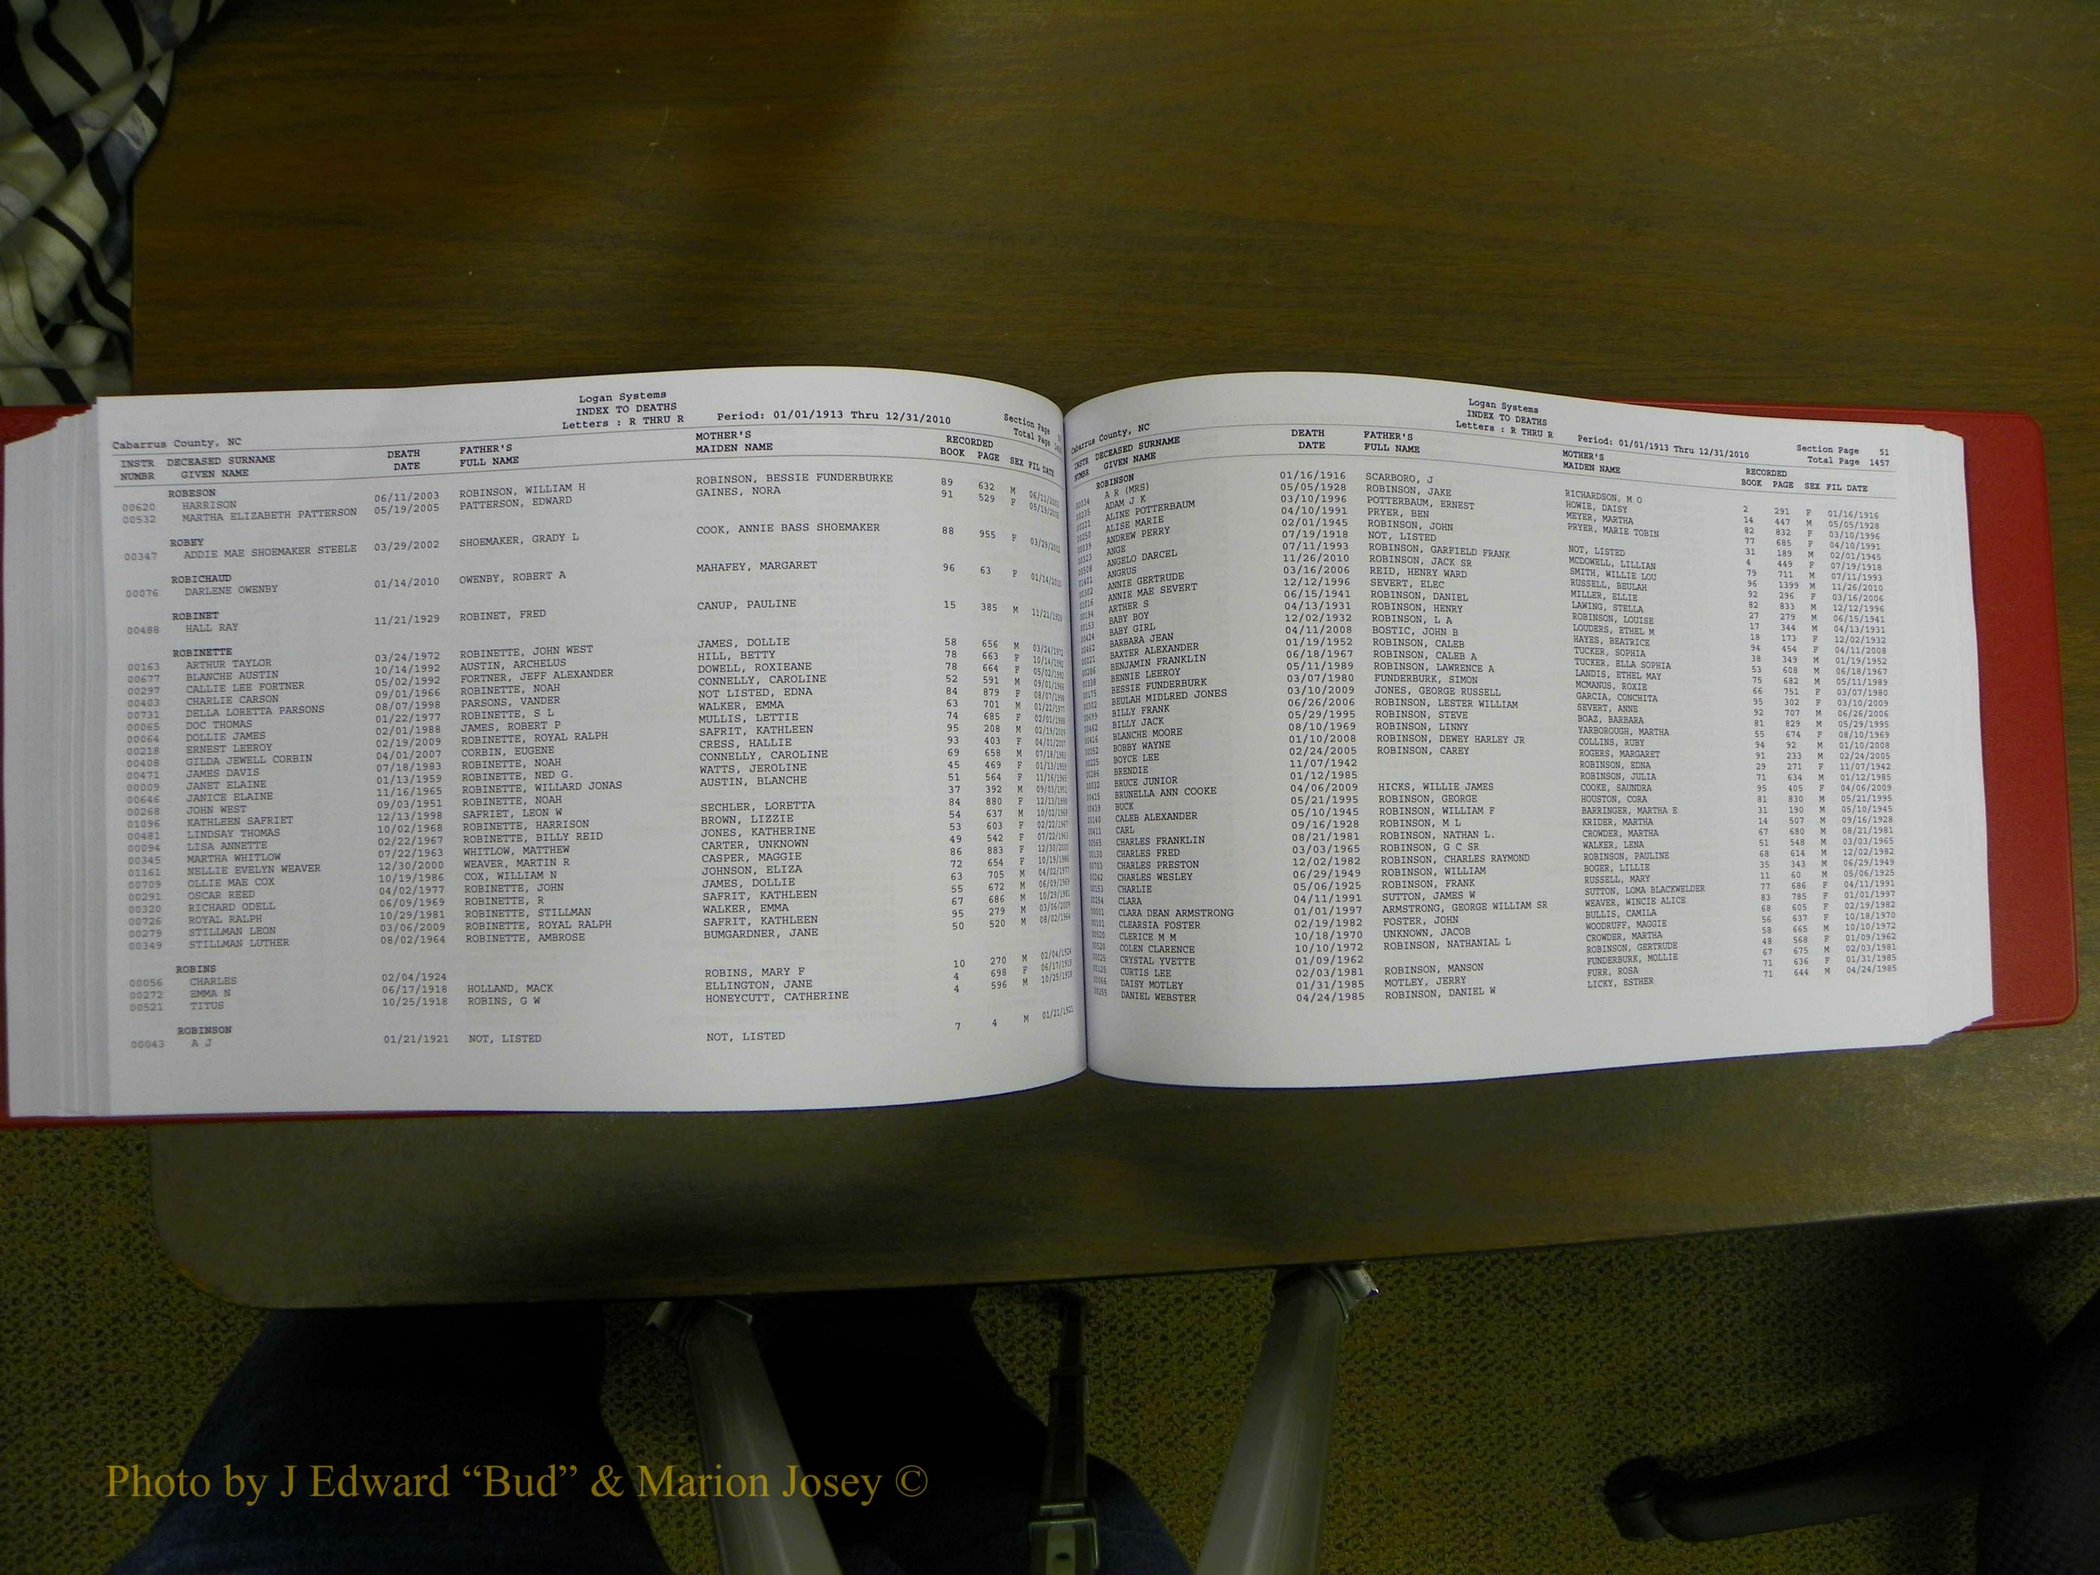 Logan Systems
INDEX TO DEATHS
Letters : R THRU R Period: 01/01/1913 Thru 12/31/2010
Cabarrus County, NC Section Page
Total Page
INSTR DECEASED SURNAME DEATH FATHER'S MOTHER'S RECORDED
NUMBR GIVEN NAME DATE FULL NAME MAIDEN NAME BOOK PAGE SEX FIL DATE
ROBESON
00620 HARRISON 06/11/2003 ROBINSON, WILLIAM H ROBINSON, BESSIE FUNDERBURKE 89 632 M 06/11/2003
00532 MARTHA ELIZABETH PATTERSON 05/19/2005 PATTERSON, EDWARD GAINES, NORA 91 529 F 05/19/2005
ROBEY
00347 ADDIE MAE SHOEMAKER STEELE 03/29/2002 SHOEMAKER, GRADY L COOK, ANNIE BASS SHOEMAKER 88 955 F 03/29/2002
ROBICHAUD
00076 DARLENE OWENBY 01/14/2010 OWENBY, ROBERT A MAHAFEY, MARGARET 96 63 F 01/14/2010
ROBINET
00488 HALL RAY 11/21/1929 ROBINET, FRED CANUP, PAULINE 15 385 M 11/21/1929
ROBINETTE
00163 ARTHUR TAYLOR 03/24/1972 ROBINETTE, JOHN WEST JAMES, DOLLIE 58 656 M 03/24/1972
00677 BLANCHE AUSTIN 10/14/1992 AUSTIN, ARCHELUS HILL, BETTY 78 663 F 10/14/1992
00297 CALLIE LEE FORTNER 05/02/1992 FORTNER, JEFF ALEXANDER DOWELL, ROXIEANE 78 664 F 05/02/1992
00403 CHARLIE CARSON 09/01/1966 ROBINETTE, NOAH CONNELLY, CAROLINE 52 591 M 09/01/1966
00731 DELLA LORETTA PARSONS 08/07/1998 PARSONS, VANDER NOT LISTED, EDNA 84 879 F 08/07/1998
00065 DOC THOMAS 01/22/1977 ROBINETTE, S L WALKER, EMMA 63 701 M 01/22/1977
00064 DOLLIE JAMES 02/01/1988 JAMES, ROBERT P MULLIS, LETTIE 74 685 F 02/01/1988
00218 ERNEST LEEROY 02/19/2009 ROBINETTE, ROYAL RALPH SAFRIT, KATHLEEN 95 208 M 02/19/2009
00408 GILDA JEWELL CORBIN 04/01/2007 CORBIN, EUGENE CRESS, HALLIE 93 403 F 04/01/2007
00471 JAMES DAVIS 07/18/1983 ROBINETTE, NOAH CONNELLY, CAROLINE 69 658 M 07/18/1983
00009 JANET ELAINE 01/13/1959 ROBINETTE, NED G. WATTS, JEROLINE 45 469 F 01/13/1959
00646 JANICE ELAINE 11/16/1965 ROBINETTE, WILLARD JONAS AUSTIN, BLANCHE 51 564 F 11/16/1965
00268 JOHN WEST 09/03/1951 ROBINETTE, NOAH 37 392 M 09/03/1951
01096 KATHLEEN SAFRIET 12/13/1998 SAFRIET, LEON W SECHLER, LORETTA 84 880 F 12/13/1998
00481 LINDSAY THOMAS 10/02/1968 ROBINETTE, HARRISON BROWN, LIZZIE 54 637 M 10/02/1968
00094 LISA ANNETTE 02/22/1967 ROBINETTE, BILLY REID JONES, KATHERINE 53 603 F 02/22/1967
00345 MARTHA WHITLOW 07/22/1963 WHITLOW, MATTHEW CARTER, UNKNOWN 49 542 F 07/22/1963
01161 NELLIE EVELYN WEAVER 12/30/2000 WEAVER, MARTIN R CASPER, MAGGIE 86 883 F 12/30/2000
00709 OLLIE MAE COX 10/19/1986 COX, WILLIAM N JOHNSON, ELIZA 72 654 F 10/19/1986
00291 OSCAR REED 04/02/1977 ROBINETTE, JOHN JAMES, DOLLIE 63 705 M 04/02/1977
00320 RICHARD ODELL 06/09/1969 ROBINETTE, R SAFRIT, KATHLEEN 55 672 M 06/09/1969
00726 ROYAL RALPH 10/29/1981 ROBINETTE, STILLMAN WALKER, EMMA 67 686 M 10/29/1981
00279 STILLMAN LEON 03/06/2009 ROBINETTE, ROYAL RALPH SAFRIT, KATHLEEN 95 279 M 03/06/2009
00349 STILLMAN LUTHER 08/02/1964 ROBINETTE, AMBROSE BUMGARDNER, JANE 50 520 M 08/02/1964
ROBINS
00056 CHARLES 02/04/1924 ROBINS, MARY F 10 270 M 02/04/1924
00272 EMMA N 06/17/1918 HOLLAND, MACK ELLINGTON, JANE 4 698 F 06/17/1918
00521 TITUS 10/25/1918 ROBINS, G W HONEYCUTT, CATHERINE 4 596 M 10/25/1918
ROBINSON
00043 A J 01/21/1921 NOT, LISTED NOT, LISTED 7 4 M 01/21/1921
Logan Systems
INDEX TO DEATHS
Letters : R THRU R Period: 01/01/1913 Thru 12/31/2010
Cabarrus County, NC Section Page 51
Total Page 1457
INSTR DECEASED SURNAME DEATH FATHER'S MOTHER'S RECORDED
NUMBR GIVEN NAME DATE FULL NAME MAIDEN NAME BOOK PAGE SEX FIL DATE
ROBINSON
A R (MRS) 01/16/1916 SCARBORO, J RICHARDSON, M O 2 291 F 01/16/1916
ADAM J K 05/05/1928 ROBINSON, JAKE HOWIE, DAISY 14 447 M 05/05/1928
ALINE POTTERBAUM 03/10/1996 POTTERBAUM, ERNEST MEYER, MARTHA 82 832 F 03/10/1996
ALISE MARIE 04/10/1991 PRYER, BEN PRYER, MARIE TOBIN 77 685 F 04/10/1991
ANDREW PERRY 02/01/1945 ROBINSON, JOHN 31 189 M 02/01/1945
ANGE 07/19/1918 NOT, LISTED NOT, LISTED 4 449 F 07/19/1918
ANGELO DARCEL 07/11/1993 ROBINSON, GARFIELD FRANK MCDOWELL, LILLIAN 79 711 M 07/11/1993
ANGRUS 11/26/2010 ROBINSON, JACK SR SMITH, WILLIE LOU 96 1399 M 11/26/2010
ANNIE GERTRUDE 03/16/2006 REID, HENRY WARD RUSSELL, BEULAH 92 296 F 03/16/2006
ANNIE MAE SEVERT 12/12/1996 SEVERT, ELEC MILLER, ELLIE 82 833 M 12/12/1996
ARTHER S 06/15/1941 ROBINSON, DANIEL LAWING, STELLA 27 279 M 06/15/1941
BABY BOY 04/13/1931 ROBINSON, HENRY ROBINSON, LOUISE 17 344 M 04/13/1931
BABY GIRL 12/02/1932 ROBINSON, L A LOUDERS, ETHEL M 18 173 F 12/02/1932
BARBARA JEAN 04/11/2008 BOSTIC, JOHN B HAYES, BEATRICE 94 454 F 04/11/2008
BAXTER ALEXANDER 01/19/1952 ROBINSON, CALEB TUCKER, SOPHIA 38 349 M 01/19/1952
BENJAMIN FRANKLIN 06/18/1967 ROBINSON, CALEB A TUCKER, ELLA SOPHIA 53 608 M 06/18/1967
BENNIE LEEROY 05/11/1989 ROBINSON, LAWRENCE A LANDIS, ETHEL MAY 75 682 M 05/11/1989
BESSIE FUNDERBURK 03/07/1980 FUNDERBURK, SIMON MCMANUS, ROXIE 66 751 F 03/07/1980
BEULAH MIDLRED JONES 03/10/2009 JONES, GEORGE RUSSELL GARCIA, CONCHITA 95 302 F 03/10/2009
BILLY FRANK 06/26/2006 ROBINSON, LESTER WILLIAM SEVERT, ANNE 92 707 M 06/26/2006
BILLY JACK 05/29/1995 ROBINSON, STEVE BOAZ, BARBARA 81 829 M 05/29/1995
BLANCHE MOORE 08/10/1969 ROBINSON, LINNY YARBOROUGH, MARTHA 55 674 F 08/10/1969
BOBBY WAYNE 01/10/2008 ROBINSON, DEWEY HARLEY JR COLLINS, RUBY 94 92 M 01/10/2008
BOYCE LEE 02/24/2005 ROBINSON, CAREY ROGERS, MARGARET 91 233 M 02/24/2005
BRENDIE 11/07/1942 ROBINSON, EDNA 29 271 F 11/07/1942
BRUCE JUNIOR 01/12/1985 ROBINSON, JULIA 71 634 M 01/12/1985
BRUNELLA ANN COOKE 04/06/2009 HICKS, WILLIE JAMES COOKE, SAUNDRA 95 405 F 04/06/2009
BUCK 05/21/1995 ROBINSON, GEORGE HOUSTON, CORA 81 830 M 05/21/1995
CALEB ALEXANDER 05/10/1945 ROBINSON, WILLIAM F BARRINGER, MARTHA E 31 190 M 05/10/1945
CARL 09/16/1928 ROBINSON, M L KRIDER, MARTHA 14 507 M 09/16/1928
CHARLES FRANKLIN 08/21/1981 ROBINSON, NATHAN L. CROWDER, MARTHA 67 680 M 08/21/1981
CHARLES FRED 03/03/1965 ROBINSON, G C SR WALKER, LENA 51 548 M 03/03/1965
CHARLES PRESTON 12/02/1982 ROBINSON, CHARLES RAYMOND ROBINSON, PAULINE 68 614 M 12/02/1982
CHARLES WESLEY 06/29/1949 ROBINSON, WILLIAM BOGER, LILLIE 35 343 M 06/29/1949
CHARLIE 05/06/1925 ROBINSON, FRANK RUSSELL, MARY 11 60 M 05/06/1925
CLARA 04/11/1991 SUTTON, JAMES W SUTTON, LOMA BLACKWELDER 77 686 F 04/11/1991
CLARA DEAN ARMSTRONG 01/01/1997 ARMSTRONG, GEORGE WILLIAM SR WEAVER, WINCIE ALICE 83 785 F 01/01/1997
CLEARSIA FOSTER 02/19/1982 FOSTER, JOHN BULLIS, CAMILA 68 605 F 02/19/1982
CLERICE M M 10/18/1970 UNKNOWN, JACOB WOODRUFF, MAGGIE 56 637 F 10/18/1970
COLEN CLARENCE 10/10/1972 ROBINSON, NATHANIAL L CROWDER, MARTHA 58 665 M 10/10/1972
CRYSTAL YVETTE 01/09/1962 ROBINSON, GERTRUDE 48 568 F 01/09/1962
CURTIS LEE 02/03/1981 ROBINSON, MANSON FUNDERBURK, MOLLIE 67 675 M 02/03/1981
DAISY MOTLEY 01/31/1985 MOTLEY, JERRY FURR, ROSA 71 636 F 01/31/1985
DANIEL WEBSTER 04/24/1985 ROBINSON, DANIEL W LICKY, ESTHER 71 644 M 04/24/1985
Photo by J Edward “Bud” & Marion Josey ©